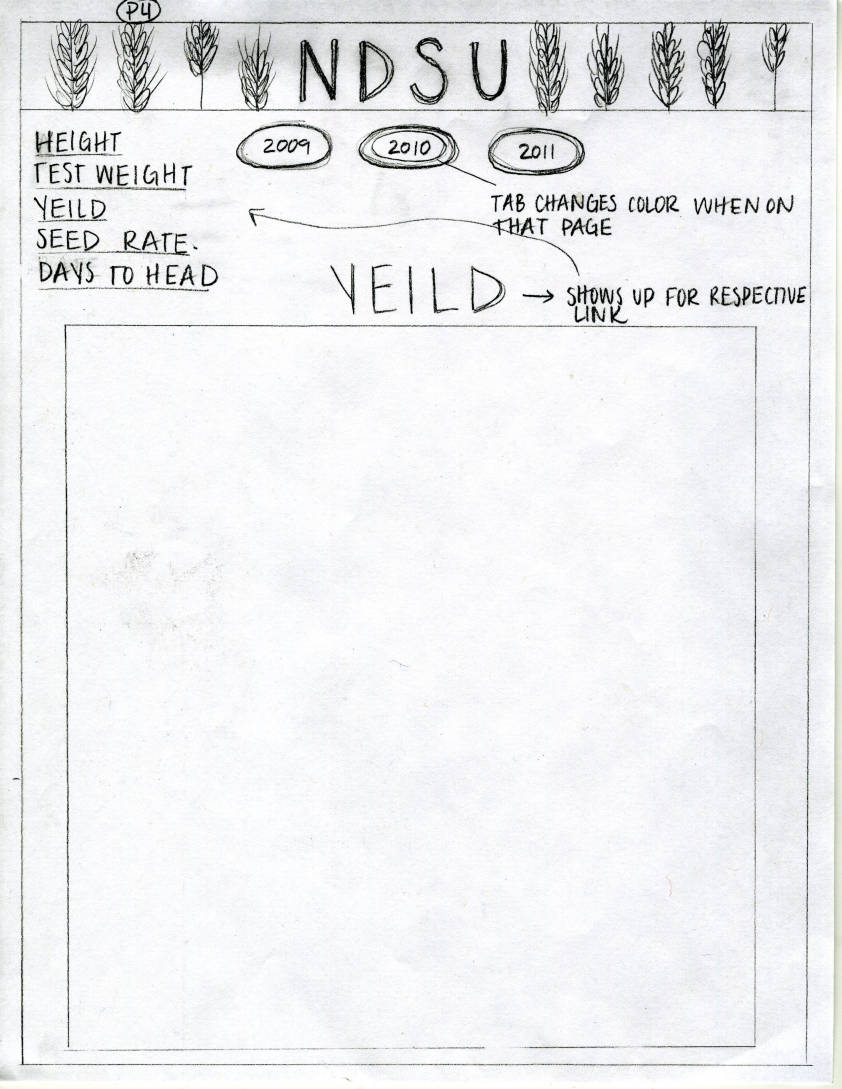 P4
NDSU
HEIGHT
TEST WEIGHT
YEILD
SEED RATE.
DAYS TO HEAD
2009
2010
2011
TAB CHANGES COLOR WHEN ON
THAT PAGE
YEILD → SHOWS UP FOR RESPECTIVE
LINK